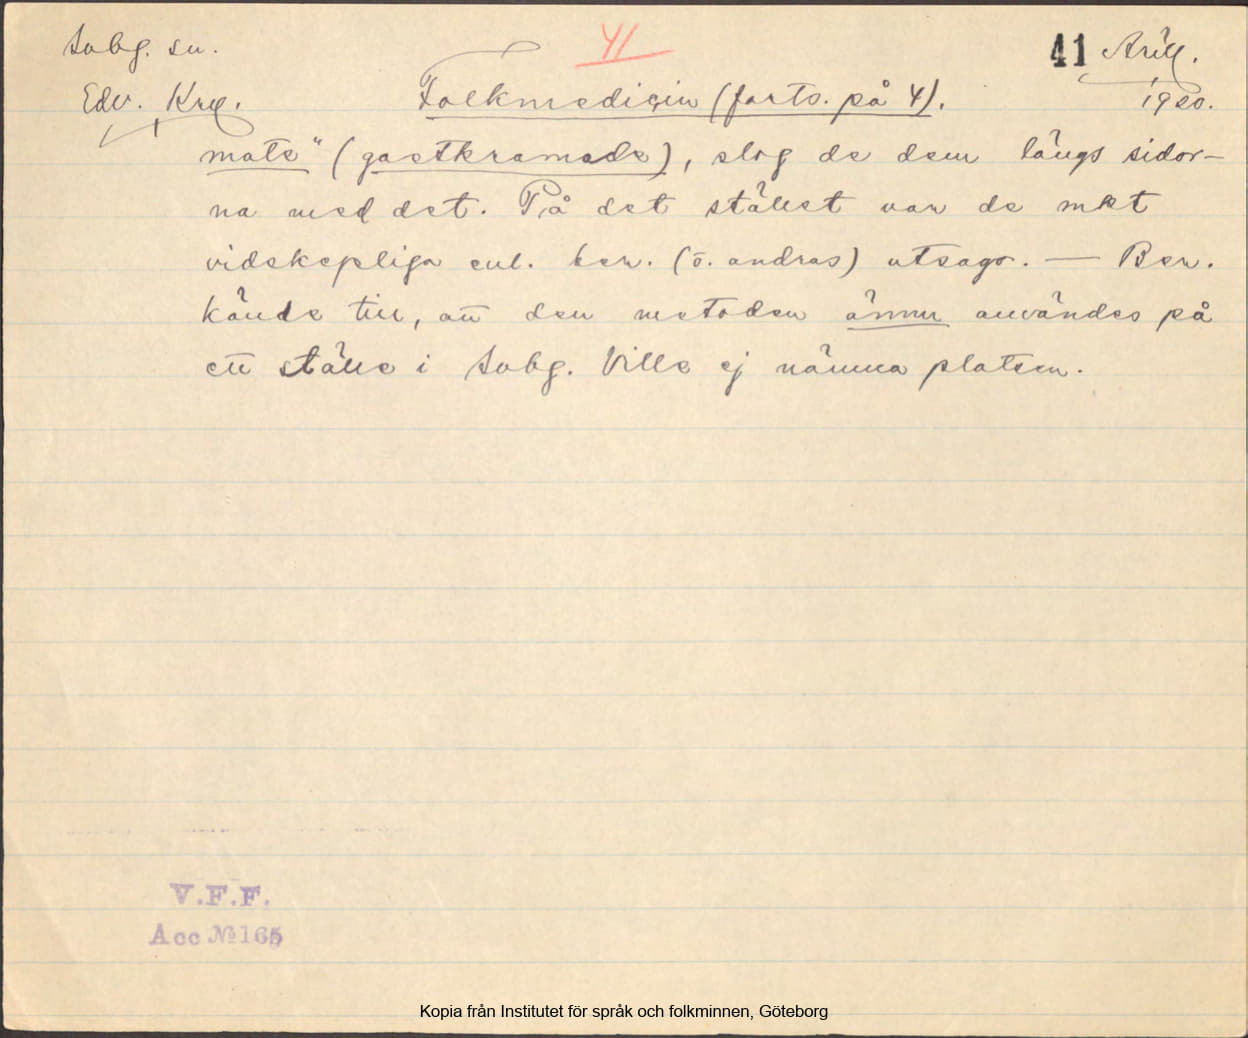 Sobg. sn.
41
41 Arill.
Edv. Krll.
Folkmedicin (forts. på 4).
1920.
mats" (gastkramade), slog de dem längs sidor-
na med det. På det stället var de mkt
vidskepliga enl. ber. (o. andras) utsago. — Ber.
kände till, att den metoden ännu användes på
ett ställe i Sobg. Ville ej nämna platsen.
V.F.F.
Acc № 165
Kopia från Institutet för språk och folkminnen, Göteborg